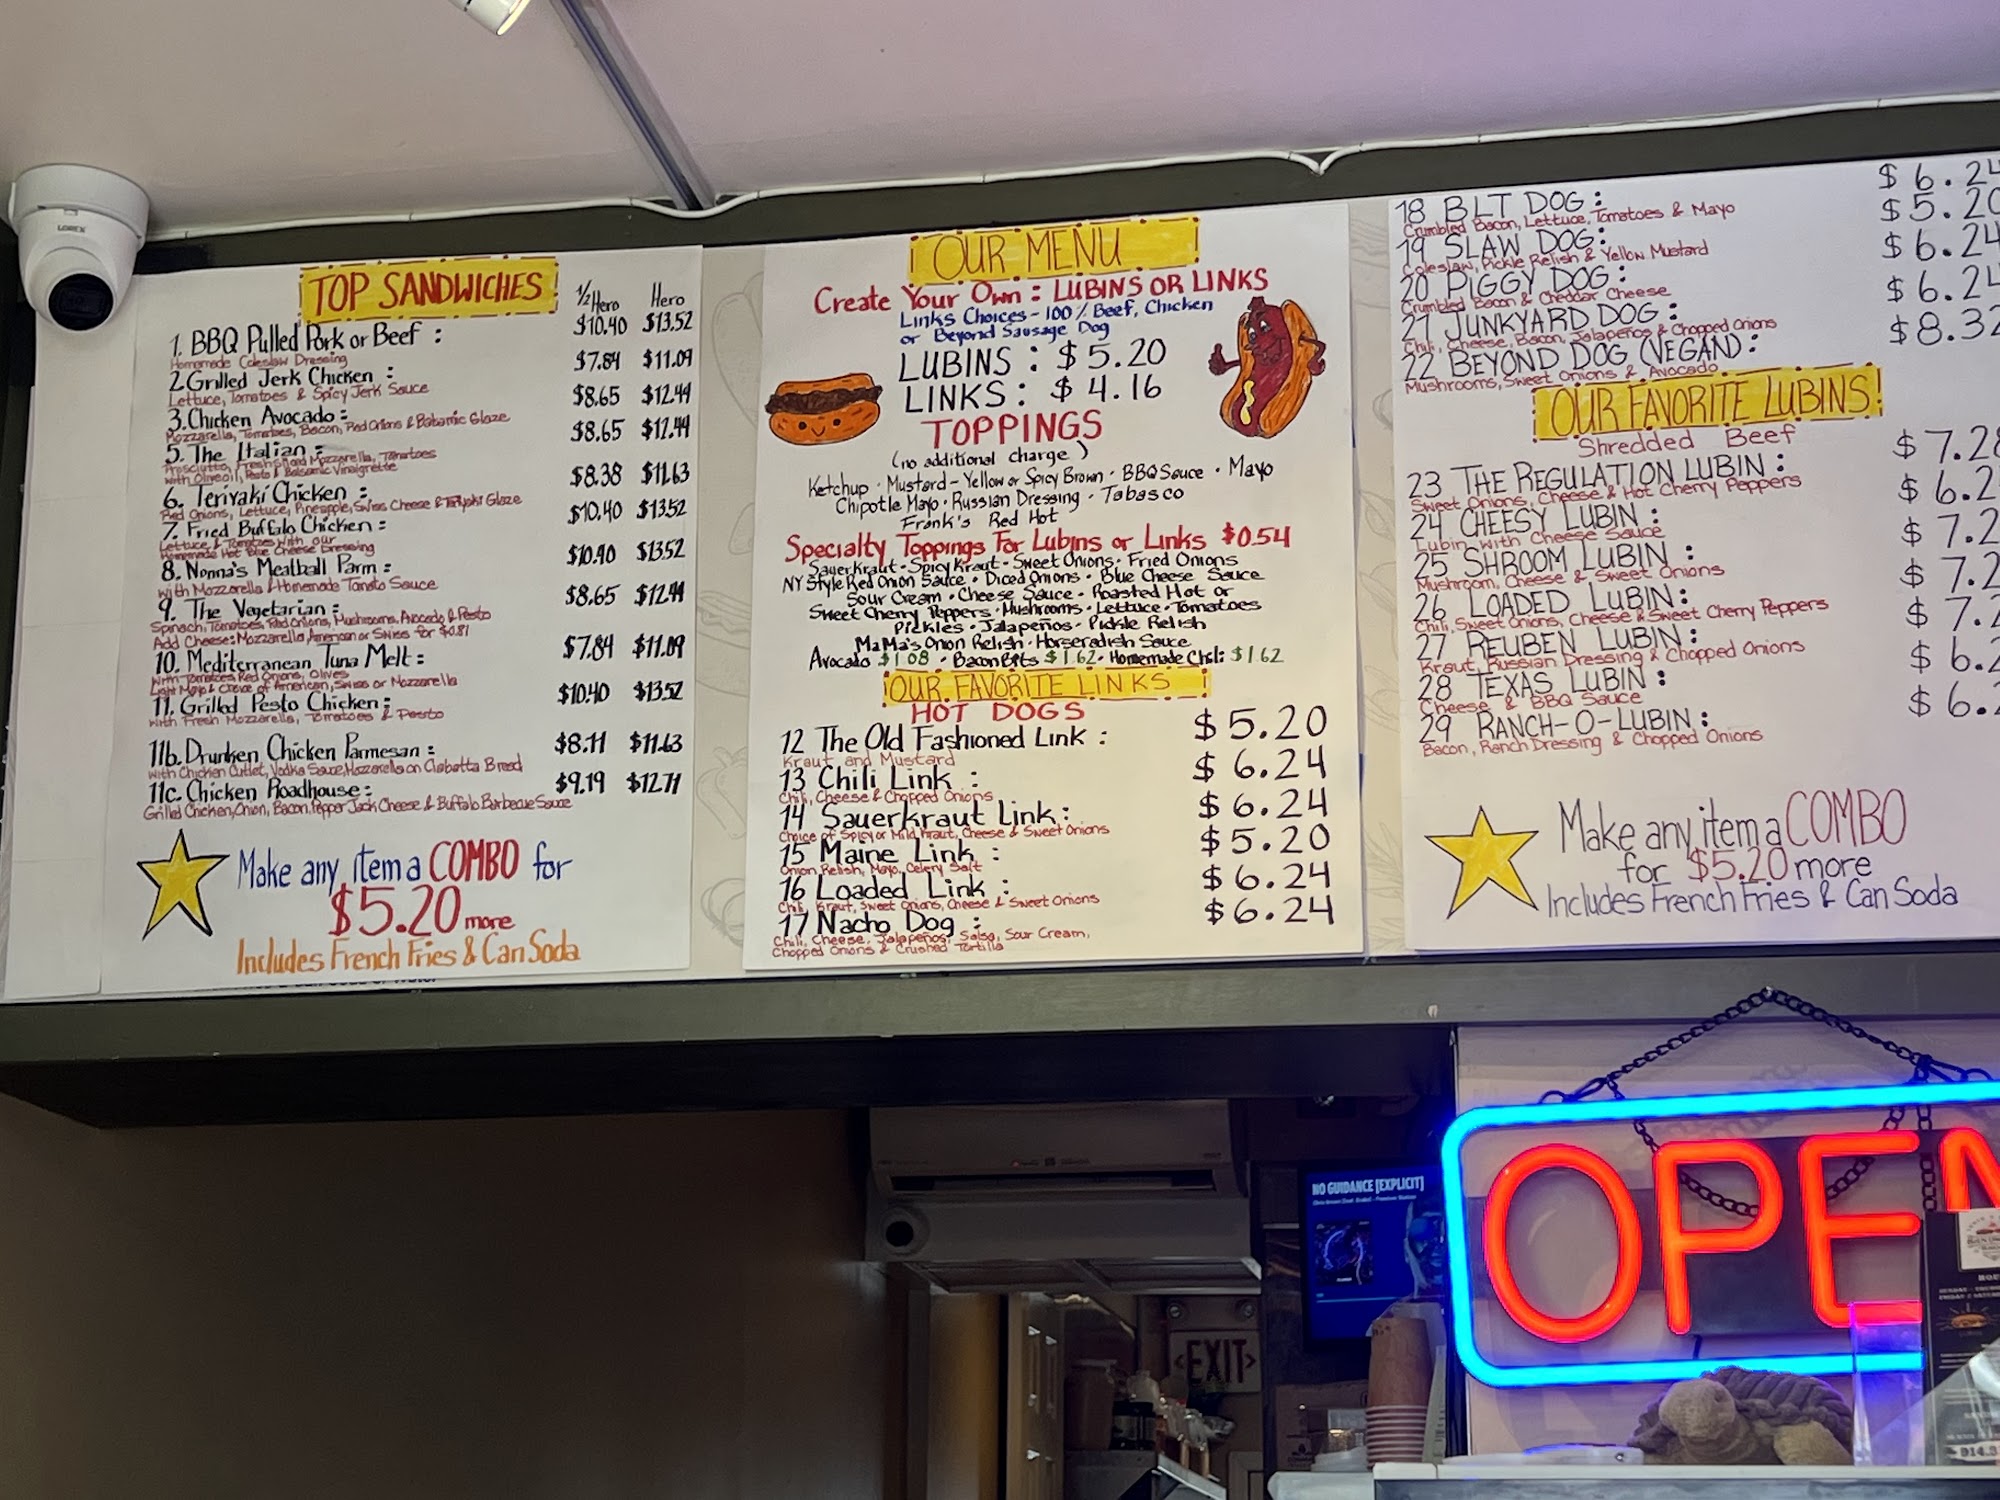 LOREX
TOP SANDWICHES
1/2 Hero Hero
1. BBQ Pulled Pork or Beef : $10.40 $13.52
Homemade Coleslaw Dressing
2. Grilled Jerk Chicken : $7.84 $11.09
Lettuce, Tomatoes & Spicy Jerk Sauce
3. Chicken Avocado : $8.65 $12.44
Mozzarella, Tomatoes, Bacon, Red Onions & Balsamic Glaze
5. The Italian : $8.65 $12.44
Prosciutto, Fresh Sliced Mozzarella, Tomatoes
with Olive oil, Pesto & Balsamic Vinaigrette
6. Teriyaki Chicken : $8.38 $11.63
Red Onions, Lettuce, Pineapple, Swiss Cheese & Teriyaki Glaze
7. Fried Buffalo Chicken : $10.40 $13.52
Lettuce & Tomatoes with our
Homemade Hot Blue Cheese Dressing
8. Nonna's Meatball Parm : $10.40 $13.52
with Mozzarella & Homemade Tomato Sauce
9. The Vegetarian : $8.65 $12.44
Spinach, Tomatoes, Red Onions, Mushrooms, Avocado & Pesto
Add Cheese: Mozzarella, American or Swiss for $0.81
10. Mediterranean Tuna Melt : $7.84 $11.09
with Tomatoes Red Onions, Olives
Light Mayo & Choice of American, Swiss or Mozzarella
11. Grilled Pesto Chicken : $10.40 $13.52
with Fresh Mozzarella, Tomatoes & Pesto
11b. Drunken Chicken Parmesan : $8.11 $11.63
with Chicken Cutlet, Vodka Sauce, Mozzarella on Ciabatta Bread
11c. Chicken Roadhouse : $9.19 $12.71
Grilled Chicken, Onion, Bacon, Pepper Jack Cheese & Buffalo Barbecue Sauce
Make any item a COMBO for
$5.20 more
Includes French Fries & Can Soda
OUR MENU
Create Your Own : LUBINS OR LINKS
Links Choices - 100% Beef, Chicken
or Beyond Sausage Dog
LUBINS : $5.20
LINKS : $4.16
TOPPINGS
(no additional charge)
Ketchup · Mustard - Yellow or Spicy Brown · BBQ Sauce · Mayo
Chipotle Mayo · Russian Dressing · Tobasco
Frank's Red Hot
Specialty Toppings For Lubins or Links $0.54
Sauerkraut · Spicy Kraut · Sweet Onions · Fried Onions
NY Style Red Onion Sauce · Diced Onions · Blue Cheese Sauce
Sour Cream · Cheese Sauce · Roasted Hot or
Sweet Cherry Peppers · Mushrooms · Lettuce · Tomatoes
Pickles · Jalapeños · Pickle Relish
MaMa's Onion Relish · Horseradish Sauce
Avocado $1.08 · Bacon Bits $1.62 · Homemade Chili $1.62
OUR FAVORITE LINKS
HOT DOGS
12 The Old Fashioned Link : $5.20
Kraut and Mustard
13 Chili Link : $6.24
Chili, Cheese & Chopped Onions
14 Sauerkraut Link : $6.24
Choice of Spicy or Mild Kraut, Cheese & Sweet Onions
15 Maine Link : $5.20
Onion Relish, Mayo, Celery Salt
16 Loaded Link : $6.24
Chili, Kraut, Sweet Onions, Cheese & Sweet Onions
17 Nacho Dog : $6.24
Chili, Cheese, Jalapeños, Salsa, Sour Cream,
Chopped Onions & Crushed Tortilla
18 BLT DOG : $6.24
Crumbled Bacon, Lettuce, Tomatoes & Mayo
19 SLAW DOG : $5.20
Coleslaw, Pickle Relish & Yellow Mustard
20 PIGGY DOG : $6.24
Crumbled Bacon & Cheddar Cheese
21 JUNKYARD DOG : $6.24
Chili, Cheese, Bacon, Jalapeños & Chopped Onions
22 BEYOND DOG (VEGAN) : $8.32
Mushrooms, Sweet Onions & Avocado
OUR FAVORITE LUBINS!
Shredded Beef
23 THE REGULATION LUBIN : $7.28
Sweet Onions, Cheese & Hot Cherry Peppers
24 CHEESY LUBIN : $6.2
Lubin with Cheese Sauce
25 SHROOM LUBIN : $7.2
Mushroom, Cheese & Sweet Onions
26 LOADED LUBIN : $7.2
Chili, Sweet Onions, Cheese & Sweet Cherry Peppers
27 REUBEN LUBIN : $7.2
Kraut, Russian Dressing & Chopped Onions
28 TEXAS LUBIN : $6.2
Cheese & BBQ Sauce
29 RANCH-O-LUBIN : $6.2
Bacon, Ranch Dressing & Chopped Onions
Make any item a COMBO
for $5.20 more
Includes French Fries & Can Soda
NO GUIDANCE [EXPLICIT]
EXIT
OPEN